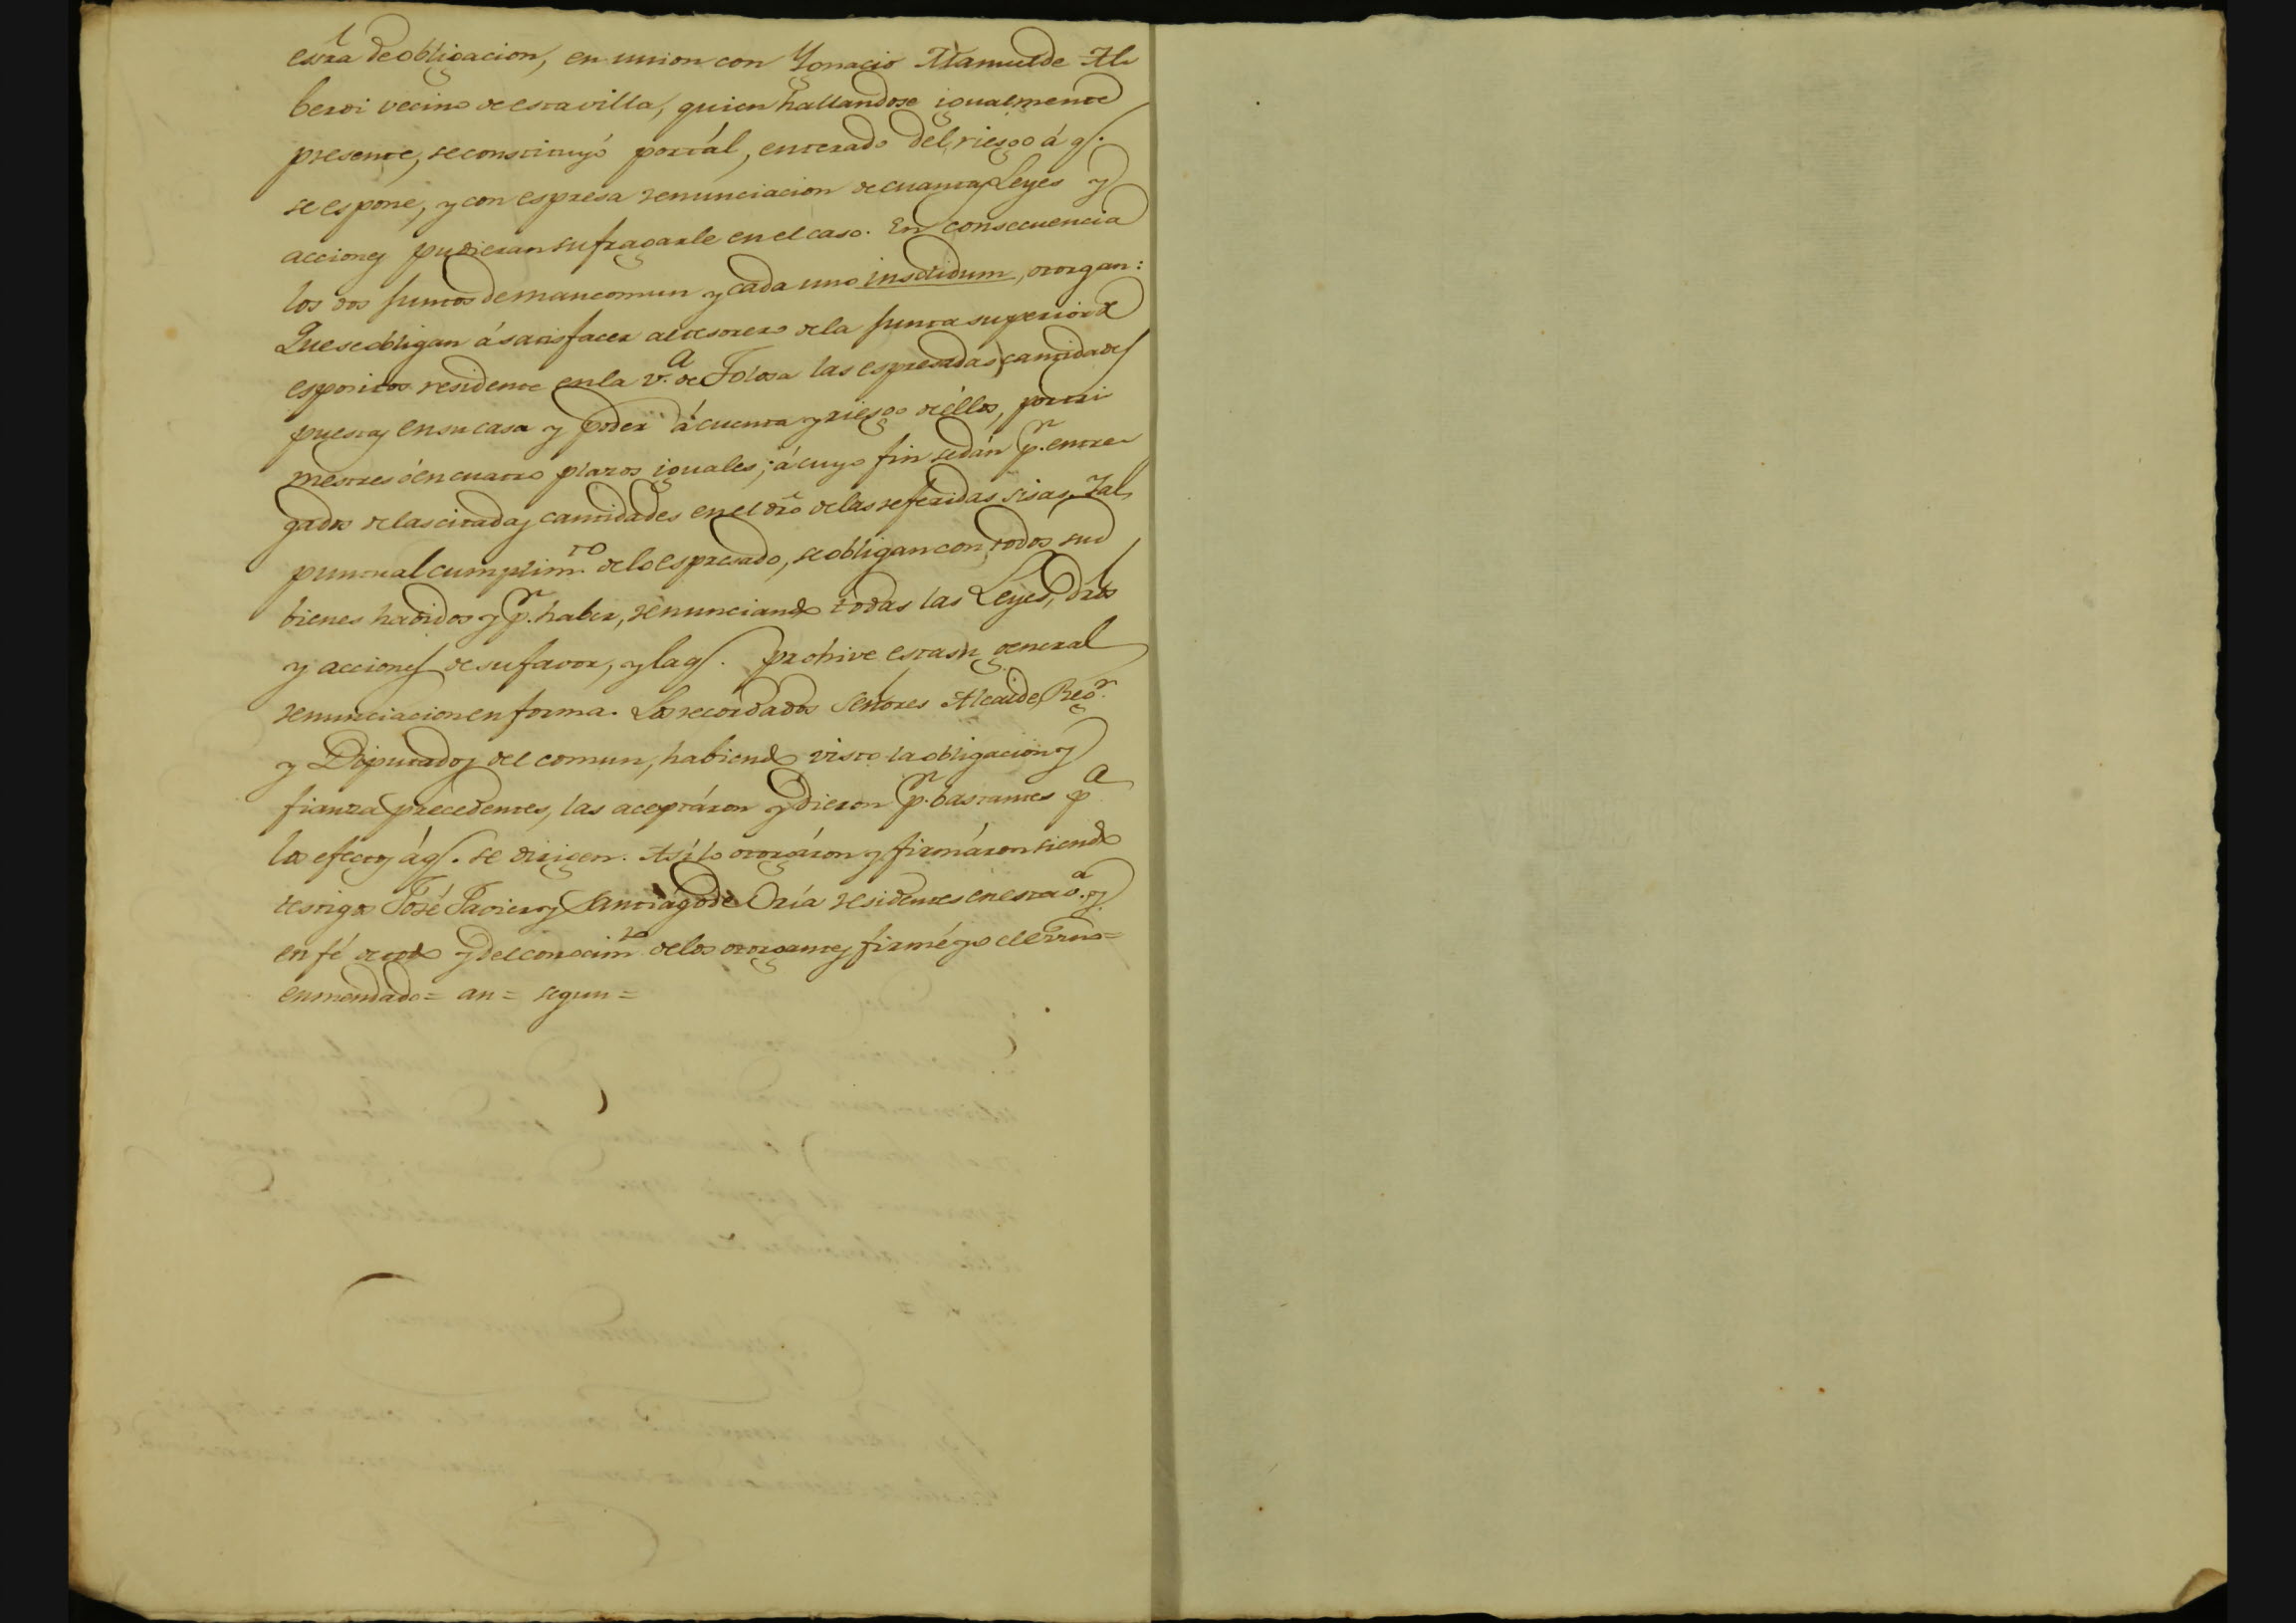 esñra de obligacion, en union con Ygnacio Manuel de Al-
berdi vecino de esta villa, quien hallandose igualmente
presente, se constituyó por tál, enterado del riesgo á q.e
se espone, y con espresa renunciacion de cuantas Leyes y
acciones pudieran sufragarle en el caso. En consecuencia
los dos juntos de mancomun y cada uno insolidum, otorgan:
Que se obligan á satisfacer al tesorero de la junta superior de
espositos residente en la v.a de Tolosa las espresadas cantidades
puestas en su casa y poder á cuenta y riesgo de éllos, por tri-
mestres ó en cuatro plazos iguales; á cuyo fin se dán p.r entre-
gados de las citadas cantidades en el dr̃o de las referidas sisas. Y al
puntual cumplim.to de lo espresado, se obligan con todos sus
bienes habidos y p.r haber, renunciando todas las Leyes, dr̃os
y acciones de su favor, y la q.e prohive esta su general
renunciacion en forma. Los recordados Señores Alcalde, Reg.r
y Diputados del comun, habiendo visto la obligacion y
fianza precedentes, las aceptáron y dieron p.r bastantes p.a
los efectos á q.e se dirigen. Así lo otorgáron y firmáron siendo
testigos José Javier y Santiágo de Oría residentes en esta v.a y
en fé de todo y del conocim.to de los otorgantes firmé yo el Esñno=
enmendado= an= segun=